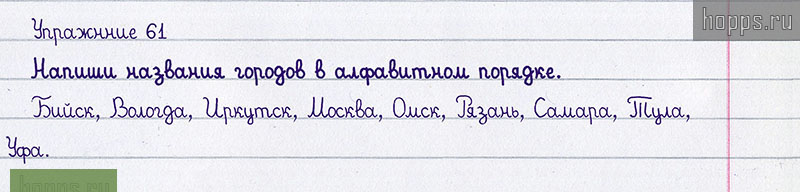 hopps.ru
Упражнние 61
Напиши названия городов в алфавитном порядке.
Бийск, Вологда, Иркутск, Москва, Омск, Рязань, Самара, Тула,
Уфа.
hopps.ru